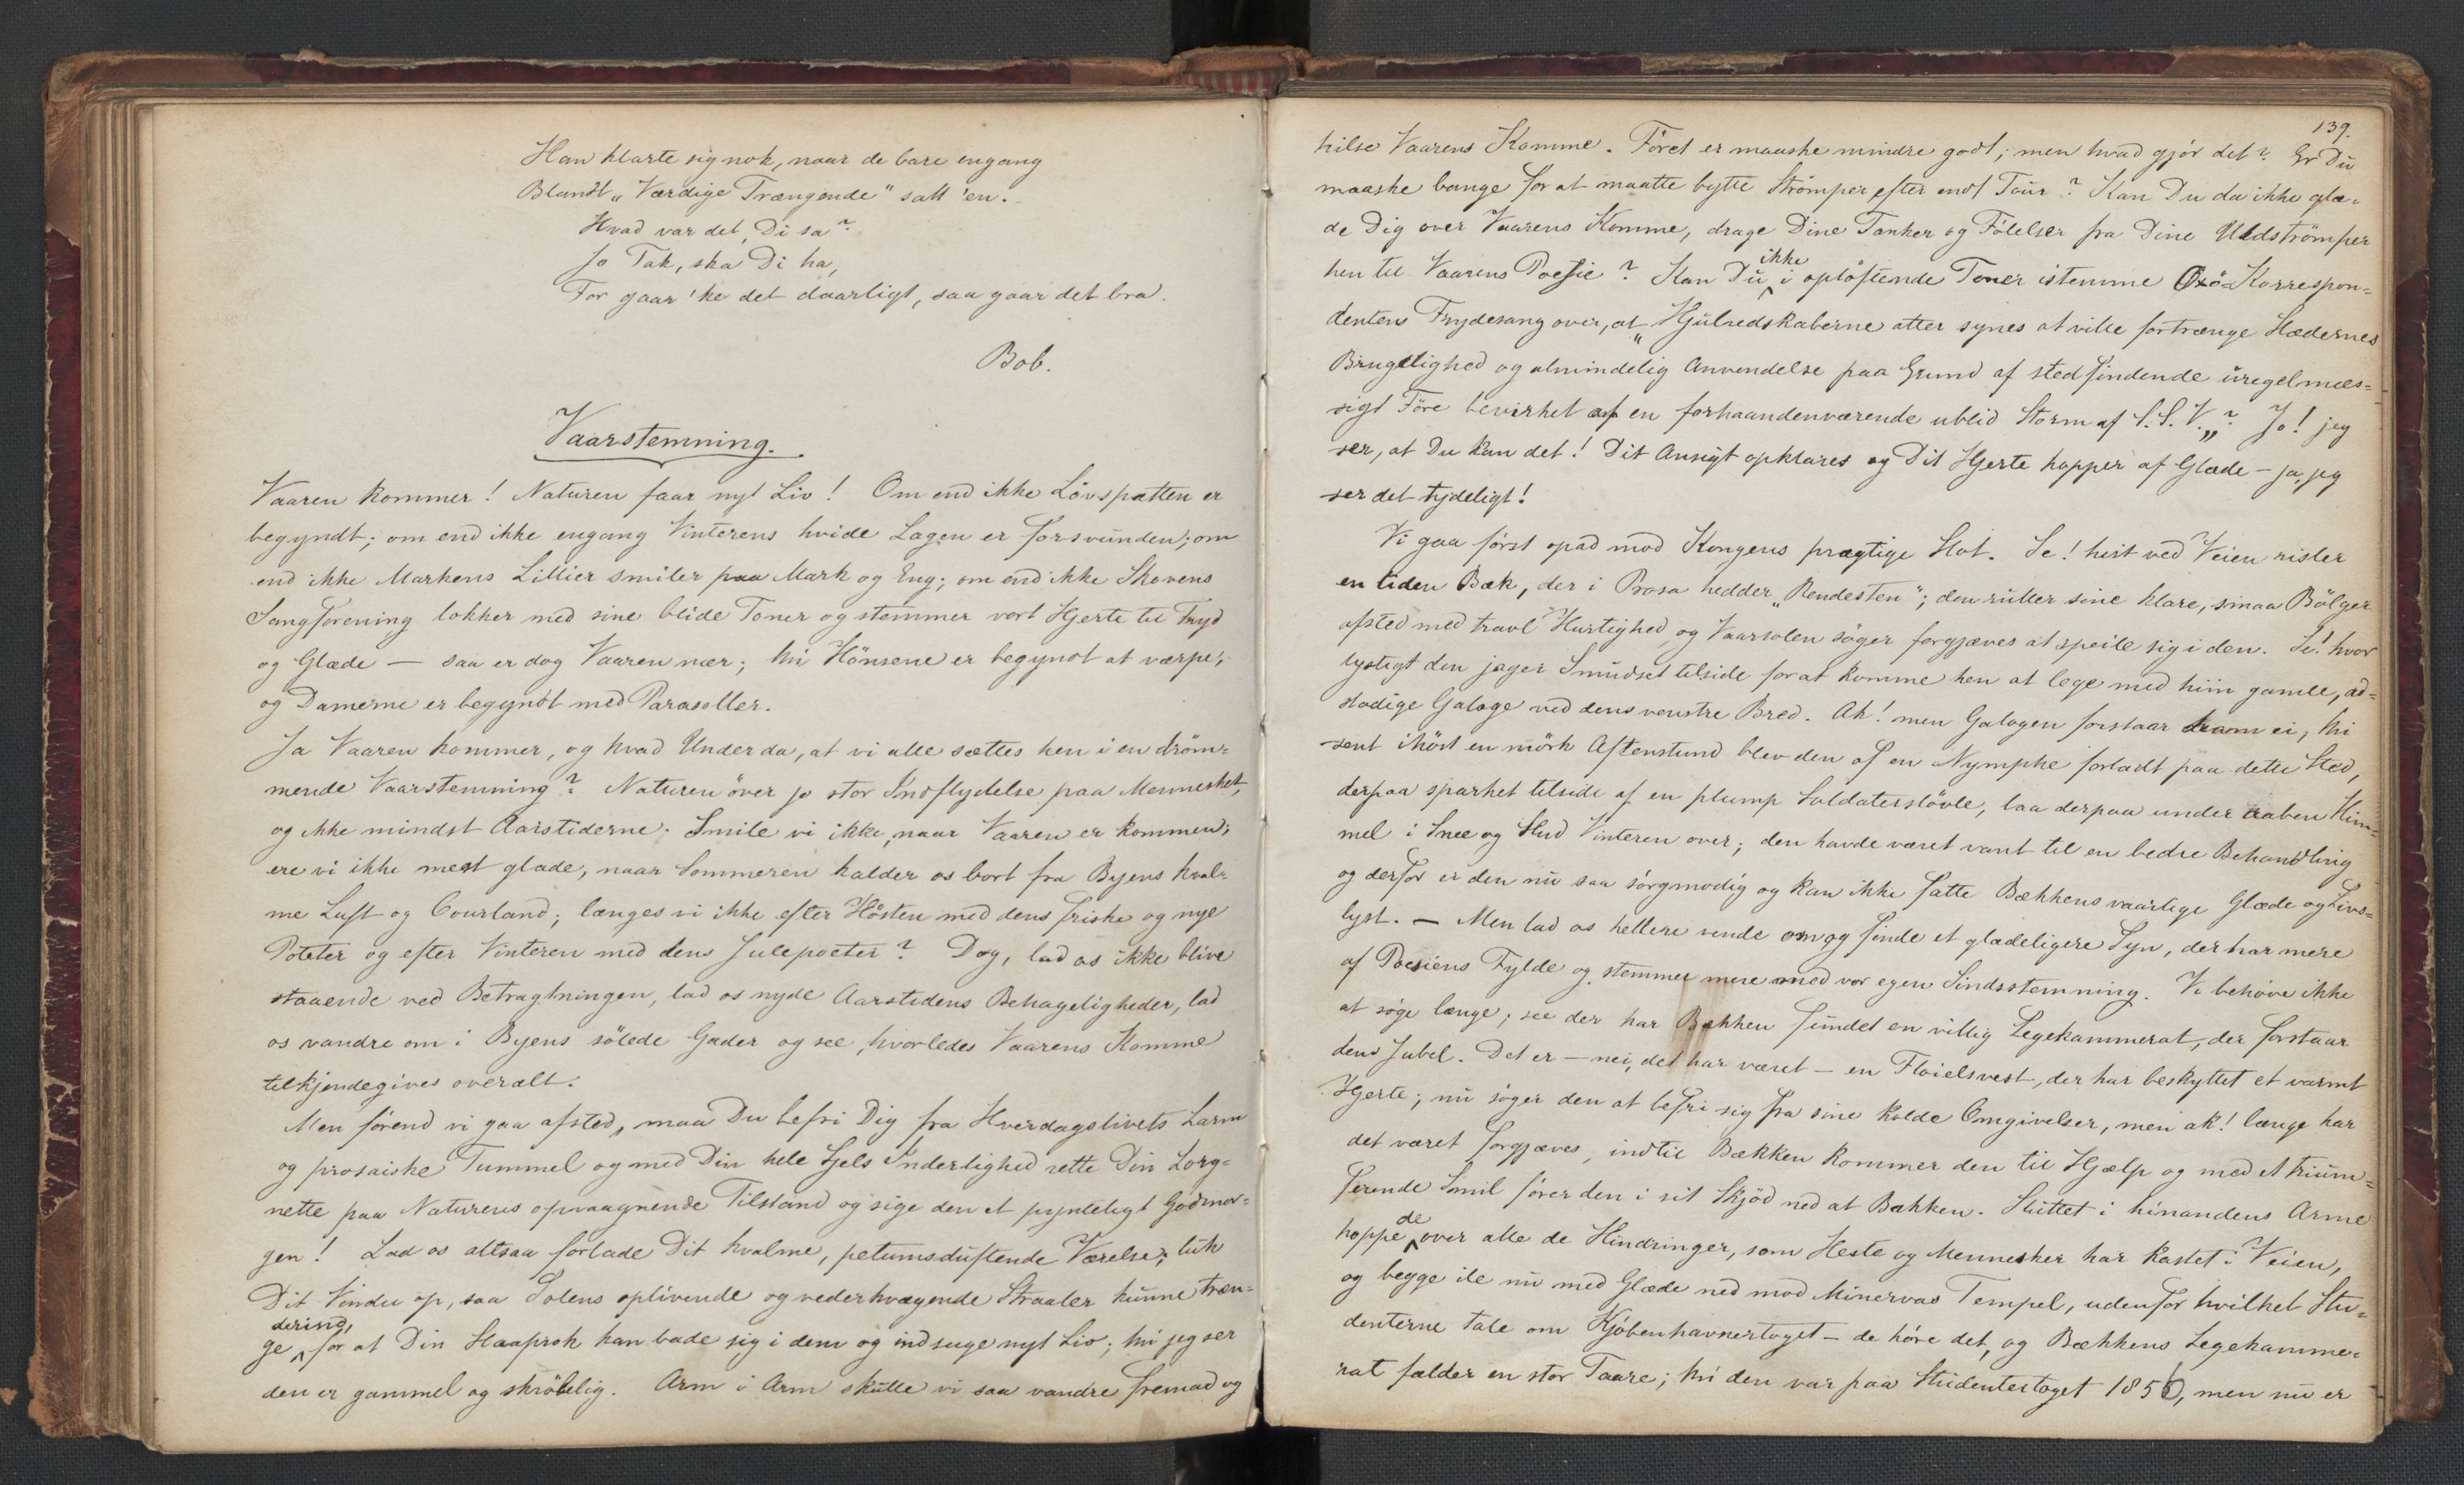 Han klarte sig nok, naar de bare engang
Blandt „Værdige Trængende" satt 'en.
Hvad var det, Di sa?
Jo Tak, ska Di ha,
For gaar 'ke det daarligt, saa gaar det bra.
Bob.
Vaarstemning.
Vaaren kommer! Naturen faar nyt Liv! Om end ikke Løvspratten er
begyndt; om end ikke engang Vinterens hvide Lagen er forsvunden; om
end ikke Markens Lillier smiler paa Mark og Eng; om end ikke Skovens
Sangforening lokker med sine blide Toner og stemmer vort Hjerte til Fryd
og Glæde — saa er dog Vaaren nær; thi Hönsene er begyndt at værpe,
og Damerne er begyndt med Parasoller.
Ja Vaaren kommer, og hvad Under da, at vi alle sættes hen i en dröm=
mende Vaarstemning? Naturen över jo stor Indflydelse paa Mennesket,
og ikke mindst Aarstiderne. Smile vi ikke, naar Vaaren er kommen;
ere vi ikke mest glade, naar Sommeren kalder os bort fra Byens kval=
me Luft og Courland; længes vi ikke efter Hösten med dens friske og nye
Poteter og efter Vinteren med dens Julepoeter? Dog, lad os ikke blive
staaende ved Betragtningen, lad os nyde Aarstidens Behageligheder, lad
os vandre om i Byens sölede Gader og see, hvorledes Vaarens Komme
tilkjendegives overalt.
Men förend vi gaa afsted, maa Du befri Dig fra Hverdagslivets Larm
og prosaiske Tummel og med Din hele Sjels Inderlighed rette Din Lorg=
nette paa Naturens opvaagnende Tilstand og sige den et pynteligt Godmor=
gen! Lad os altsaa forlade Dit kvalme, petumsduftende Værelse; luk
Dit Vindu op, saa Solens oplivende og vederkvægende Straaler kunne træn=
derind,
ge for at Din Slaaprok kan bade sig i dem og indsuge nyt Liv; thi jeg ser
den er gammel og skröbelig. Arm i Arm skulle vi saa vandre fremad og
139.
hilse Vaarens Komme. Föret er maaske mindre godt; men hvad gjör det? Er Du
maaske bange for at maatte bytte Strömper efter endt Tour? Kan Du da ikke glæ=
de Dig over Vaarens Komme, drage Dine Tanker og Fölelser fra Dine Uldströmper
ikke
hen til Vaarens Poesie? Kan Du i oplöftende Toner istemme Oxö-Korrespon=
dentens Frydesang over, at „Hjulredskaberne atter synes at ville fortrænge Slædernes
Brugelighed og almindelig Anvendelse paa Grund af stedfindende uregelmæs=
sigt Före bevirket af en forhaandenværende ublid Storm af S.S.V."? Jo! jeg
ser, at Du kan det! Dit Ansigt opklares og Dit Hjerte hopper af Glæde — ja, jeg
ser det tydeligt!
Vi gaa först opad mod Kongens prægtige Slot. Se! hist ved Veien risler
en liden Bæk, der i Prosa hedder „Rendesten"; den ruller sine klare, smaa Bölger
afsted med travl Hurtighed, og Vaarsolen söger forgjæves at speile sig i den. Se! hvor
lystigt den jager Smudset tilside for at komme hen at lege med hiin gamle, ad=
stadige Galoge ved dens venstre Bred. Ak! men Galogen forstaar ham ei, thi
sent ihöst en mörk Aftenstund blev den af en Nymphe forladt paa dette Sted,
derpaa sparket tilside af en plump Soldaterstövle, laa derpaa under aaben Him=
mel i Snee og Slud Vinteren over; den havde været vant til en bedre Behandling
og derfor er den nu saa sörgmodig og kan ikke fatte Bækkens vaarlige Glæde og Livs=
lyst. — Men lad os hellere vende om og finde et glædeligere Syn, der har mere
af Poesiens Fylde og stemmer mere med vor egen Sindsstemning. Vi behöve ikke
at söge længe; see der har Bækken fundet en villig Legekammerat, der forstaar
dens Jubel. Det er — nei, det har været — en Flöielsvest, der har beskyttet et varmt
Hjerte; nu söger den at befri sig fra sine kolde Omgivelser, men ak! længe har
det været forgjæves, indtil Bækken kommer den til Hjælp og med et trium=
ferende Smil förer den i sit Skjöd ned at Bakken. Sluttet i hinandens Arme
de
hoppe over alle de Hindringer, som Heste og Mennesker har kastet i Veien,
og begge ile nu med Glæde ned mod Minervas Tempel, udenfor hvilket Stu=
denterne tale om Kjöbenhavnertoget — de höre det, og Bækkens Legekamme=
rat fælder en stor Taare; thi den var paa Studentertoget 1856, men nu er